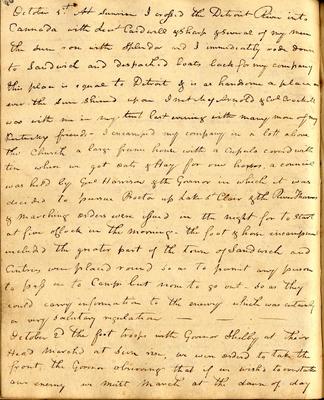 October 1st. At sunrise I crossed the Detroit River into
Cannada with Leut Cardwell & Sharp & several of my men
the sun rose with splendor and I immediately rode down
to Sandwich and despached boats back for my company
this place is equal to Detroit & is as handsome a place as
ever the sun shined upon I met Maj & Col Crockett
was with me in my tent last evening with many more of my
Kentucky friends - I encamped my company in a lot above
the Church a large frame house with a Cupula covered with
tin where we got oats & Hay for our horses, a council
was held by Genl Harrison & the Govenor in which it was
decided to pursue Proctor up Lake St Clair & the River Thames
& marching orders were issued in the night for to start
at five oClock in the morning. the foot & horse incampment
included the greater part of the town of Sandwich and
Centries were placed round so as to permit any person
to pass in to Camp but none to go out - so as they
could carry information to the enemy which was certainly
a very salutary regulation
October 2d the foot troops with Govenor Shelby at their
Head marched at Sun rise, we were ordered to take the
front, the Govenor observing that if we wished to overtake
our enemy we must March at the dawn of day